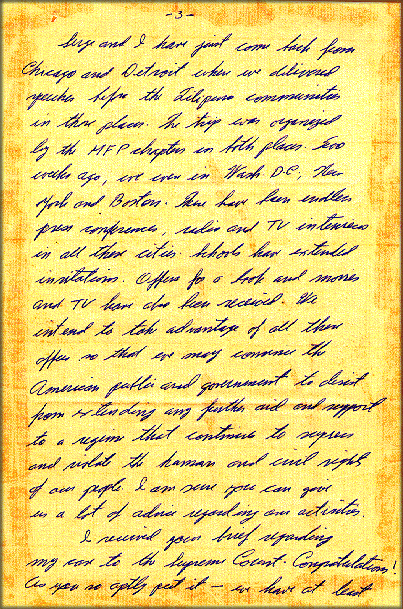 - 3 -
Serge and I have just come back from
Chicago and Detroit where we delivered
speeches before the Filipino communities
in those places. The trip was organized
by the MFP chapters in both places. Two
weeks ago, we were in Wash D.C., New
York and Boston. There have been endless
press conferences, radio and TV interviews
in all these cities. Schools have extended
invitations. Offers for a book and movies
and TV have also been received. We
intend to take advantage of all these
offers so that we may convince the
American public and government to desist
from extending any further aid and support
to a regime that continues to repress
and violate the human and civil rights
of our people. I am sure you can give
us a lot of advice regarding our activities.
I received your brief regarding
my case to the Supreme Court. Congratulations!
As you so aptly put it - we have at least